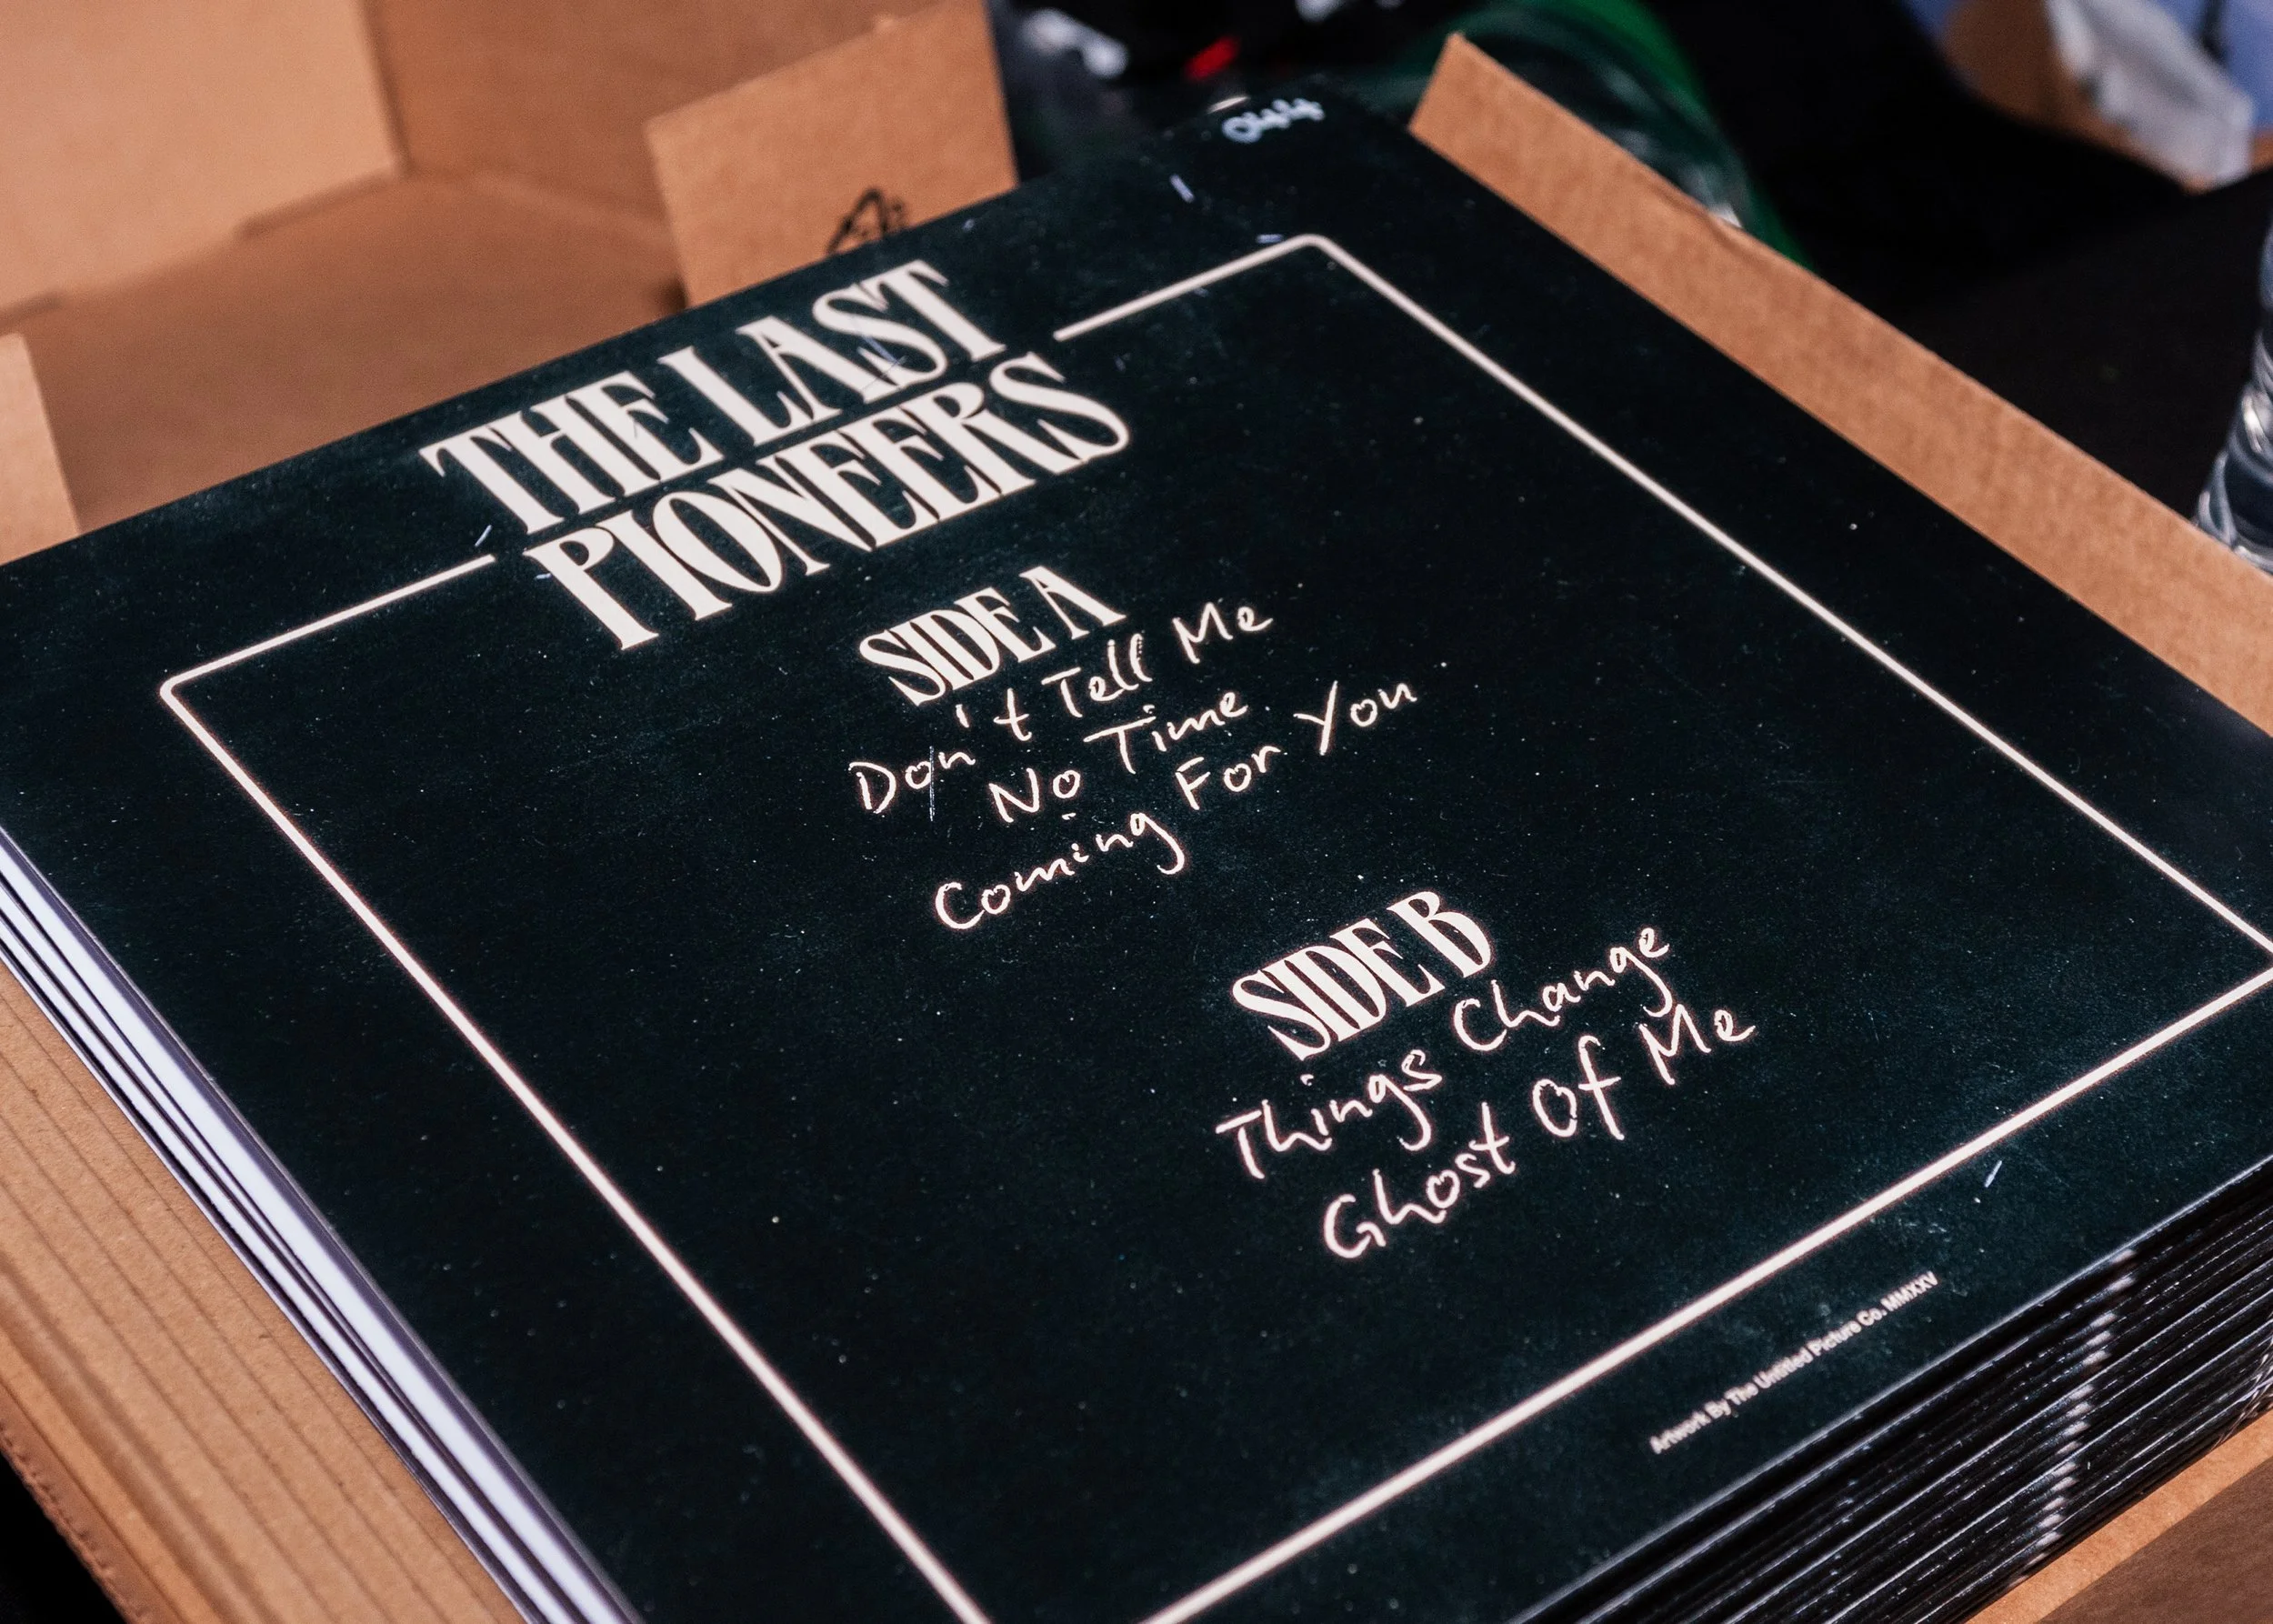 THE LAST
PIONEERS
SIDE A
Don't Tell Me
No Time
Coming For You
SIDE B
Things Change
Ghost Of Me
Artwork By The Untitled Picture Co. MMXXV